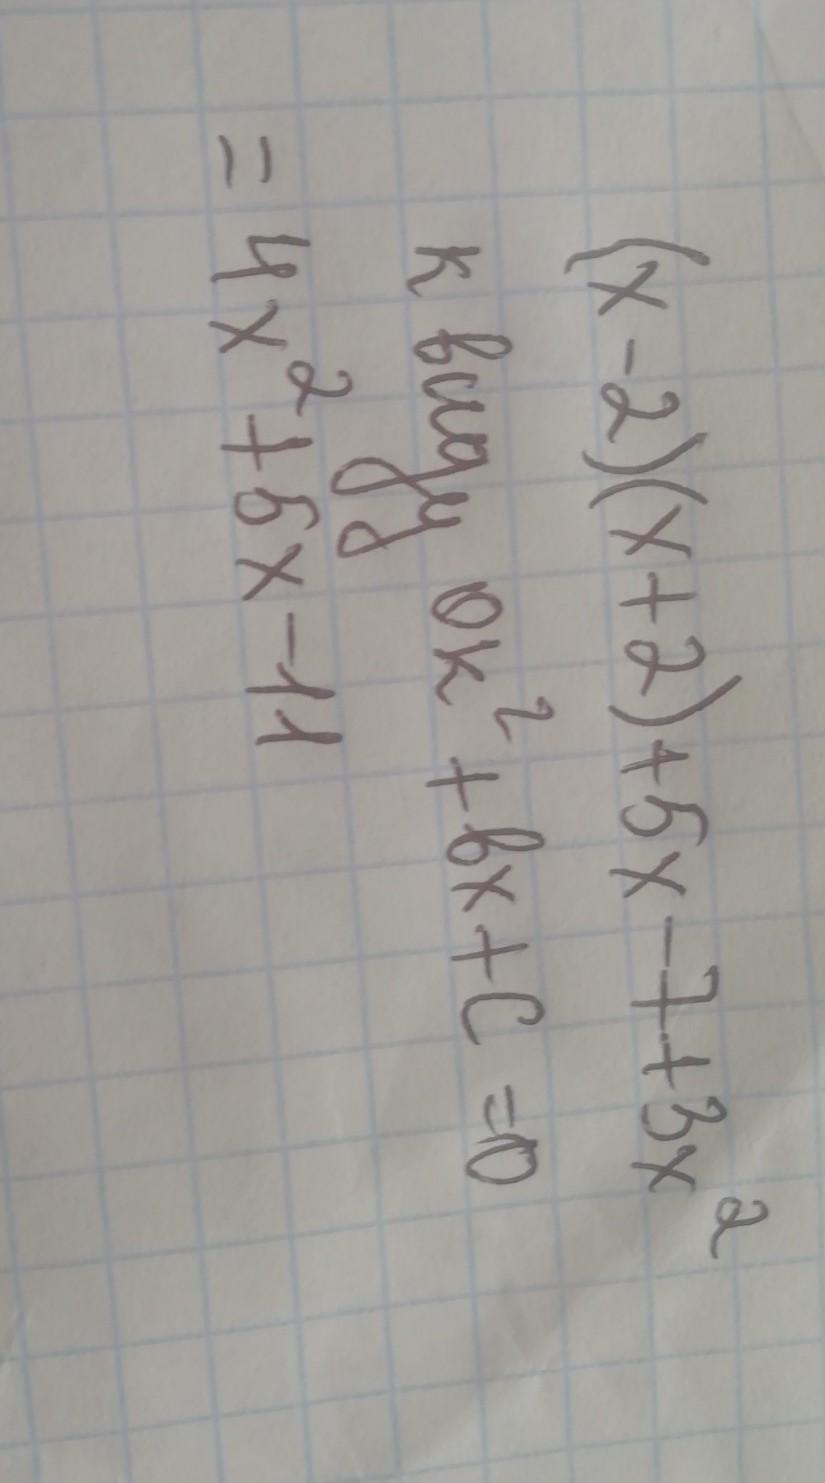 (x-2)(x+2)+5x-7+3x²
к виду ax²+bx+c=0
=4x²+5x-11